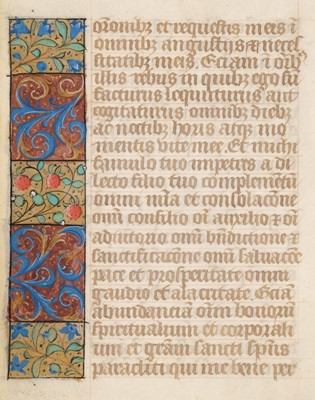 orōnibꝫ et requestis meis ī
omnibꝫ angustijs ⁊ neces
sitatibꝫ meis. Et iam ī oībꝫ
illis rebus in quibꝫ ego sū
facturus loquuturus aut
cogitaturus omnibꝫ diebꝫ
ac noctibꝫ horis atqꝫ mo
mentis vite mee. Et michi
famulo tuo impetres a di
lecto filio tuo complementū
omni
omī consilio oī auxilio ⁊ oī
adiutorio omī bn̄dictione ⁊
sanctificacōne omī saluacōe
pace et prosperitate omni
gaudio et alacritate. Eciā
abundanciam oīm bonorum
spiritualium et corporali
um et grām sancti spūs
paracliti qui me bene per